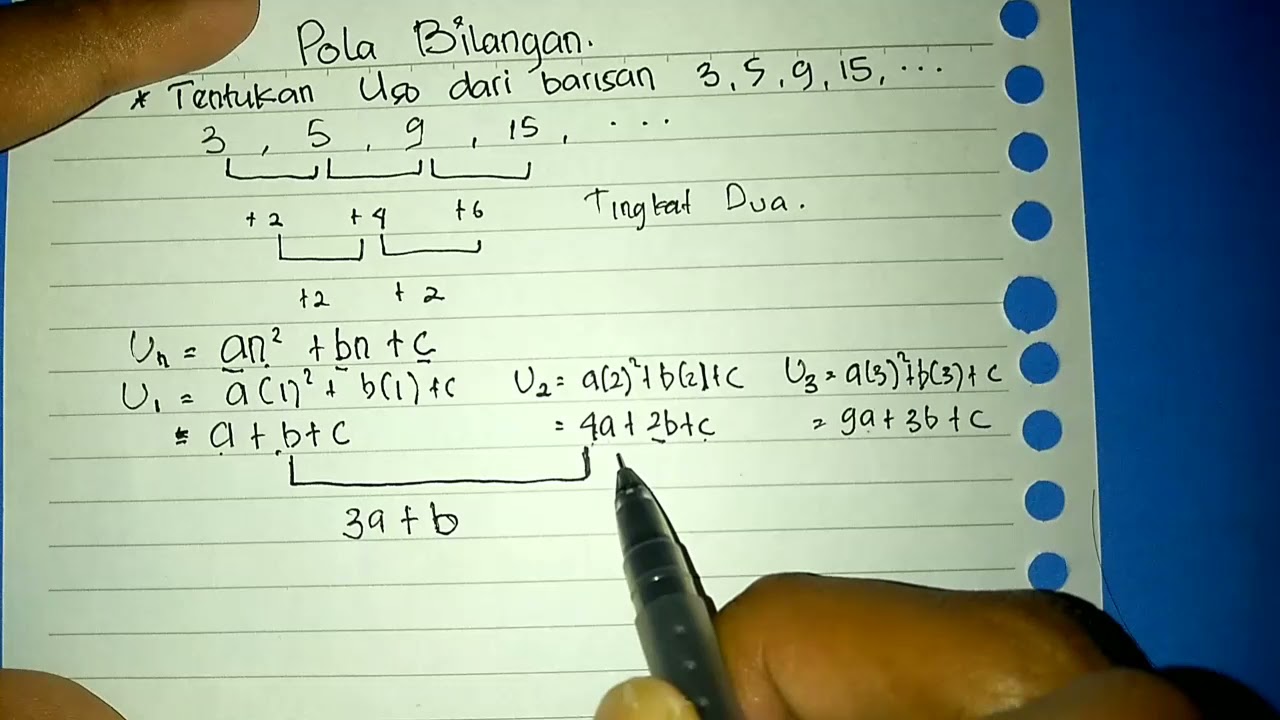 Pola Bilangan.
* Tentukan U50 dari barisan 3, 5, 9, 15, ...
3, 5, 9, 15, ...
+2 +4 +6 Tingkat Dua.
+2 +2
Un = an² + bn + c
U1 = a(1)² + b(1) + c U2 = a(2)² + b(2) + c U3 = a(3)² + b(3) + c
= a + b + c = 4a + 2b + c = 9a + 3b + c
3a + b